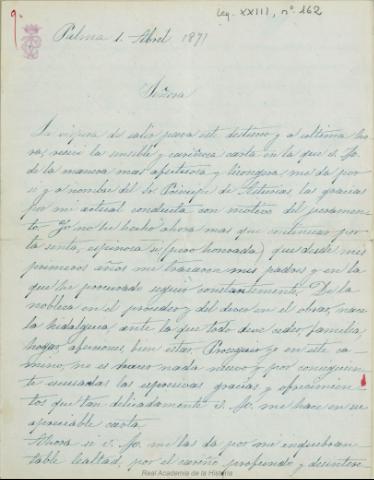 9.
Leg. XXIII, nº 162
Palma 1. Abril 1871
Señora
La vispera de salir para este destierro y a ultima ho
ra, recivi la sensible y cariñosa carta en la que V. M.
de la manera mas afectuosa y lisongera, me da por
si y a nombre del Sr Principe de Asturias, las gracias
por mi actual conducta con motivo del juramen-
to. Yo no he hecho ahora mas que continuar por
la senda, espinosa si (pero honrada) que desde mis
primeros años me trazaron mis padres y en la
que he procurado seguir constantemente. De la
nobleza en el proceder y del decoro en el obrar, nace
la hidalguia, ante la que todo deve ceder, familia,
hogar, afecciones, bien estar. Proseguir yo en este ca-
mino, no es hacer nada nuevo y por consiguien
te escusadas las espresivas gracias y ofrecimien
tos que tan delicadamente V. M. me hace en su
apreciable carta.
Ahora si V. M. me las da por mi inquebran-
table lealtad, por el cariño profundo y desintere-
Real Academia de la Historia